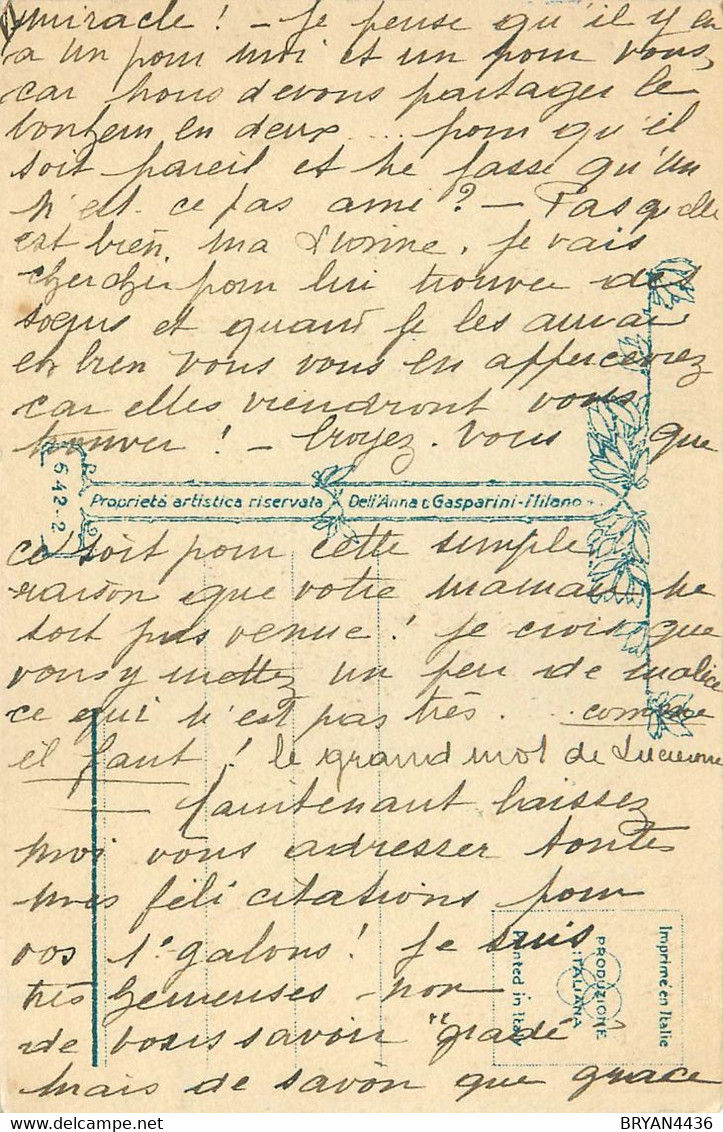 miracle ! - Je pense qu'il y en
a un pour moi et un pour vous,
car nous devons partager le
bonheur en deux .... pour qu'il
soit pareil et ne fasse qu'un
n'est-ce pas amie ? - Pas qu'elle
est bien, ma Yvonne, je vais
chercher pour lui trouver des
sœurs et quand je les aurai
eh bien vous vous en appercevrez
car elles viendront vous
trouver ! - Croyez-vous que
642-2
Proprietà artistica riservata Dell'Anna & Gasparini - Milano
ce soit pour cette simple
raison que votre maman ne
soit pas venue ! je crois que
vous y mettez un peu de malice
ce qui n'est pas très ... comme
il faut ! le grand mot de Lucienne
Maintenant laissez
moi vous adresser toutes
mes félicitations pour
vos 1er galons ! Je suis
très heureuses non
de vous savoir "gradé
mais de savoir que grace
Imprimé en Italie
PRODUZIONE ITALIANA
Printed in Italy
BRYAN4436